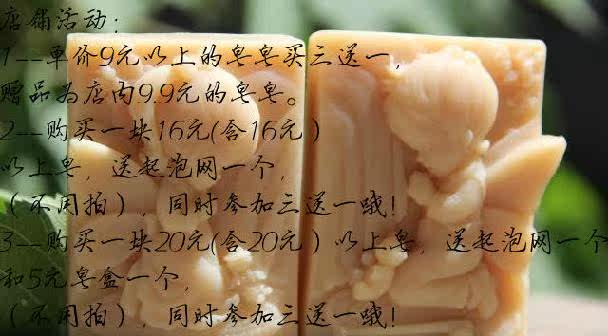 店铺活动：
1--单价9元以上的皂皂买三送一，
赠品为店内9.9元的皂皂。
2--购买一块16元(含16元）
以上皂，送起泡网一个，
（不用拍），同时参加三送一哦！
3--购买一块20元(含20元）以上皂，送起泡网一个
和5元皂盒一个，
（不用拍），同时参加三送一哦！